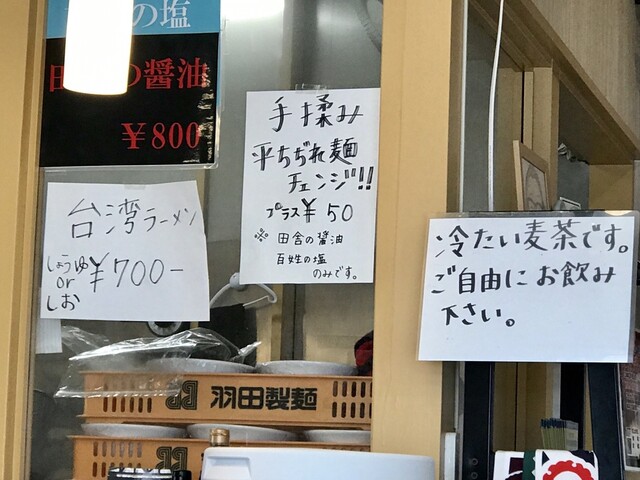 の塩
の醤油
¥800
台湾ラーメン
しょうゆ
or
しお
¥700-
手揉み
平ちぢれ麺
チェンジ!!
プラス¥50
※田舎の醤油
百姓の塩
のみです。
冷たい麦茶です。
ご自由にお飲み
下さい。
羽田製麺